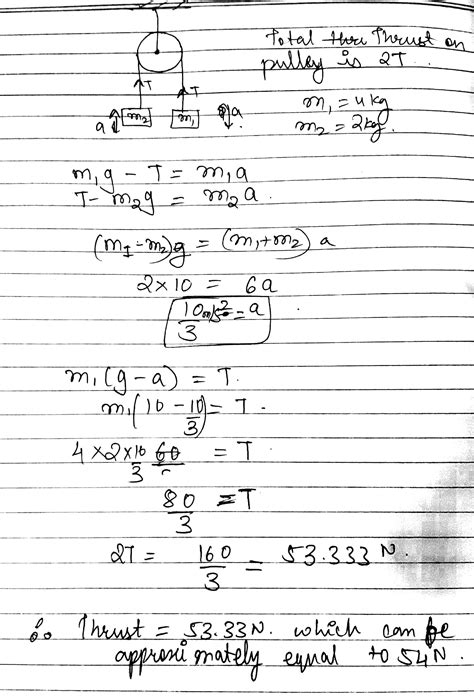 Total Thrust on
pulley is 2T.
T
T
a
m2
m1
a
m1 = 4kg
m2 = 2kg.
m1g - T = m1a
T - m2g = m2a.
(m1-m2)g = (m1+m2) a
2×10 = 6a
10/3 m/s² = a
m1(g-a) = T.
m1(10 - 10/3) = T.
4×2×10/3 = T
80/3 = T
2T = 160/3 = 53.333 N.
∴ Thrust = 53.33N. which can be
approximately equal to 54N.